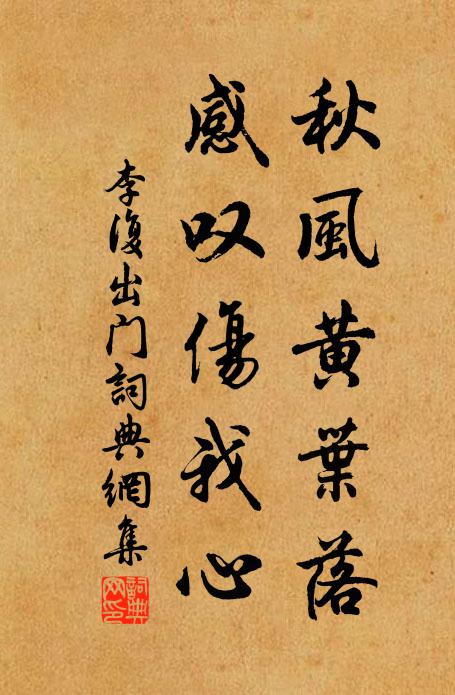 秋風黃葉落
感叹傷我心
李復出门詞典網集
詞典
网印